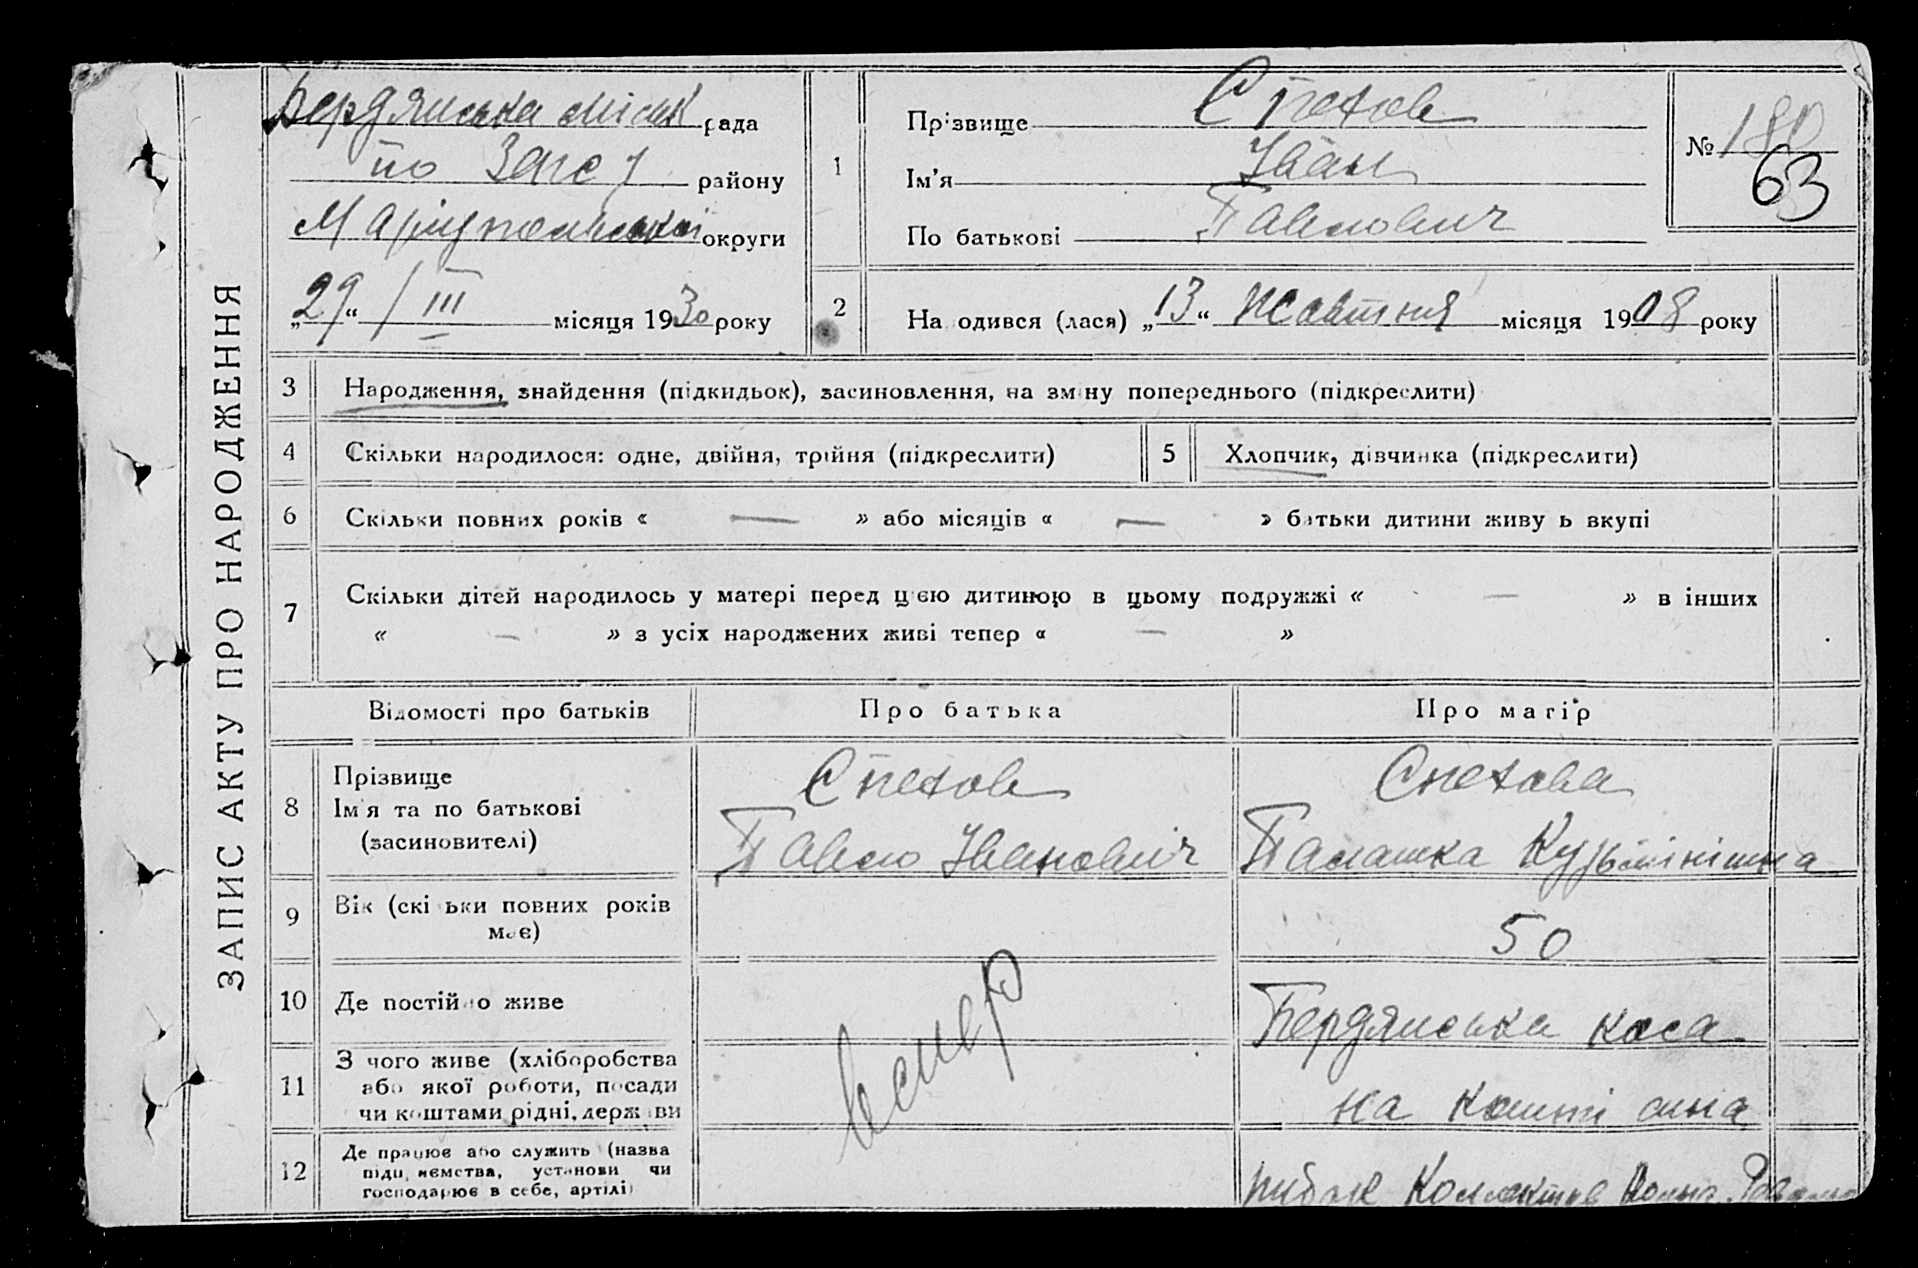 ЗАПИС АКТУ ПРО НАРОДЖЕННЯ
Бердянська міськ рада
по Загсу району
Маріупольської округи
„29“ / III місяця 1930 року
1
Прізвище Спетов
Ім'я Іван
По батькові Павлович
№ 180
63
2
Народився (лася) „13“ жовтня місяця 1908 року
3 Народження, знайдення (підкидьок), засиновлення, на зміну попереднього (підкреслити)
4 Скільки народилося: одне, двійня, трійня (підкреслити)
5 Хлопчик, дівчинка (підкреслити)
6 Скільки повних років « — » або місяців « — » батьки дитини живуть вкупі
7 Скільки дітей народилось у матері перед цією дитиною в цьому подружжі « — » в інших
« — » з усіх народжених живі тепер « — »
Відомості про батьків Про батька Про матір
8 Прізвище
Ім'я та по батькові
(засиновителі)
Спетов
Павло Іванович
Спетова
Палашка Кузьмінішна
9 Вік (скільки повних років
має)
50
10 Де постійно живе
Бердянська коса
11 З чого живе (хліборобства
або якої роботи, посади
чи коштами рідні, держави
на кошті сина
12 Де працює або служить (назва
підприємства, установи чи
господарює в себе, артілі)
вмер
рибак